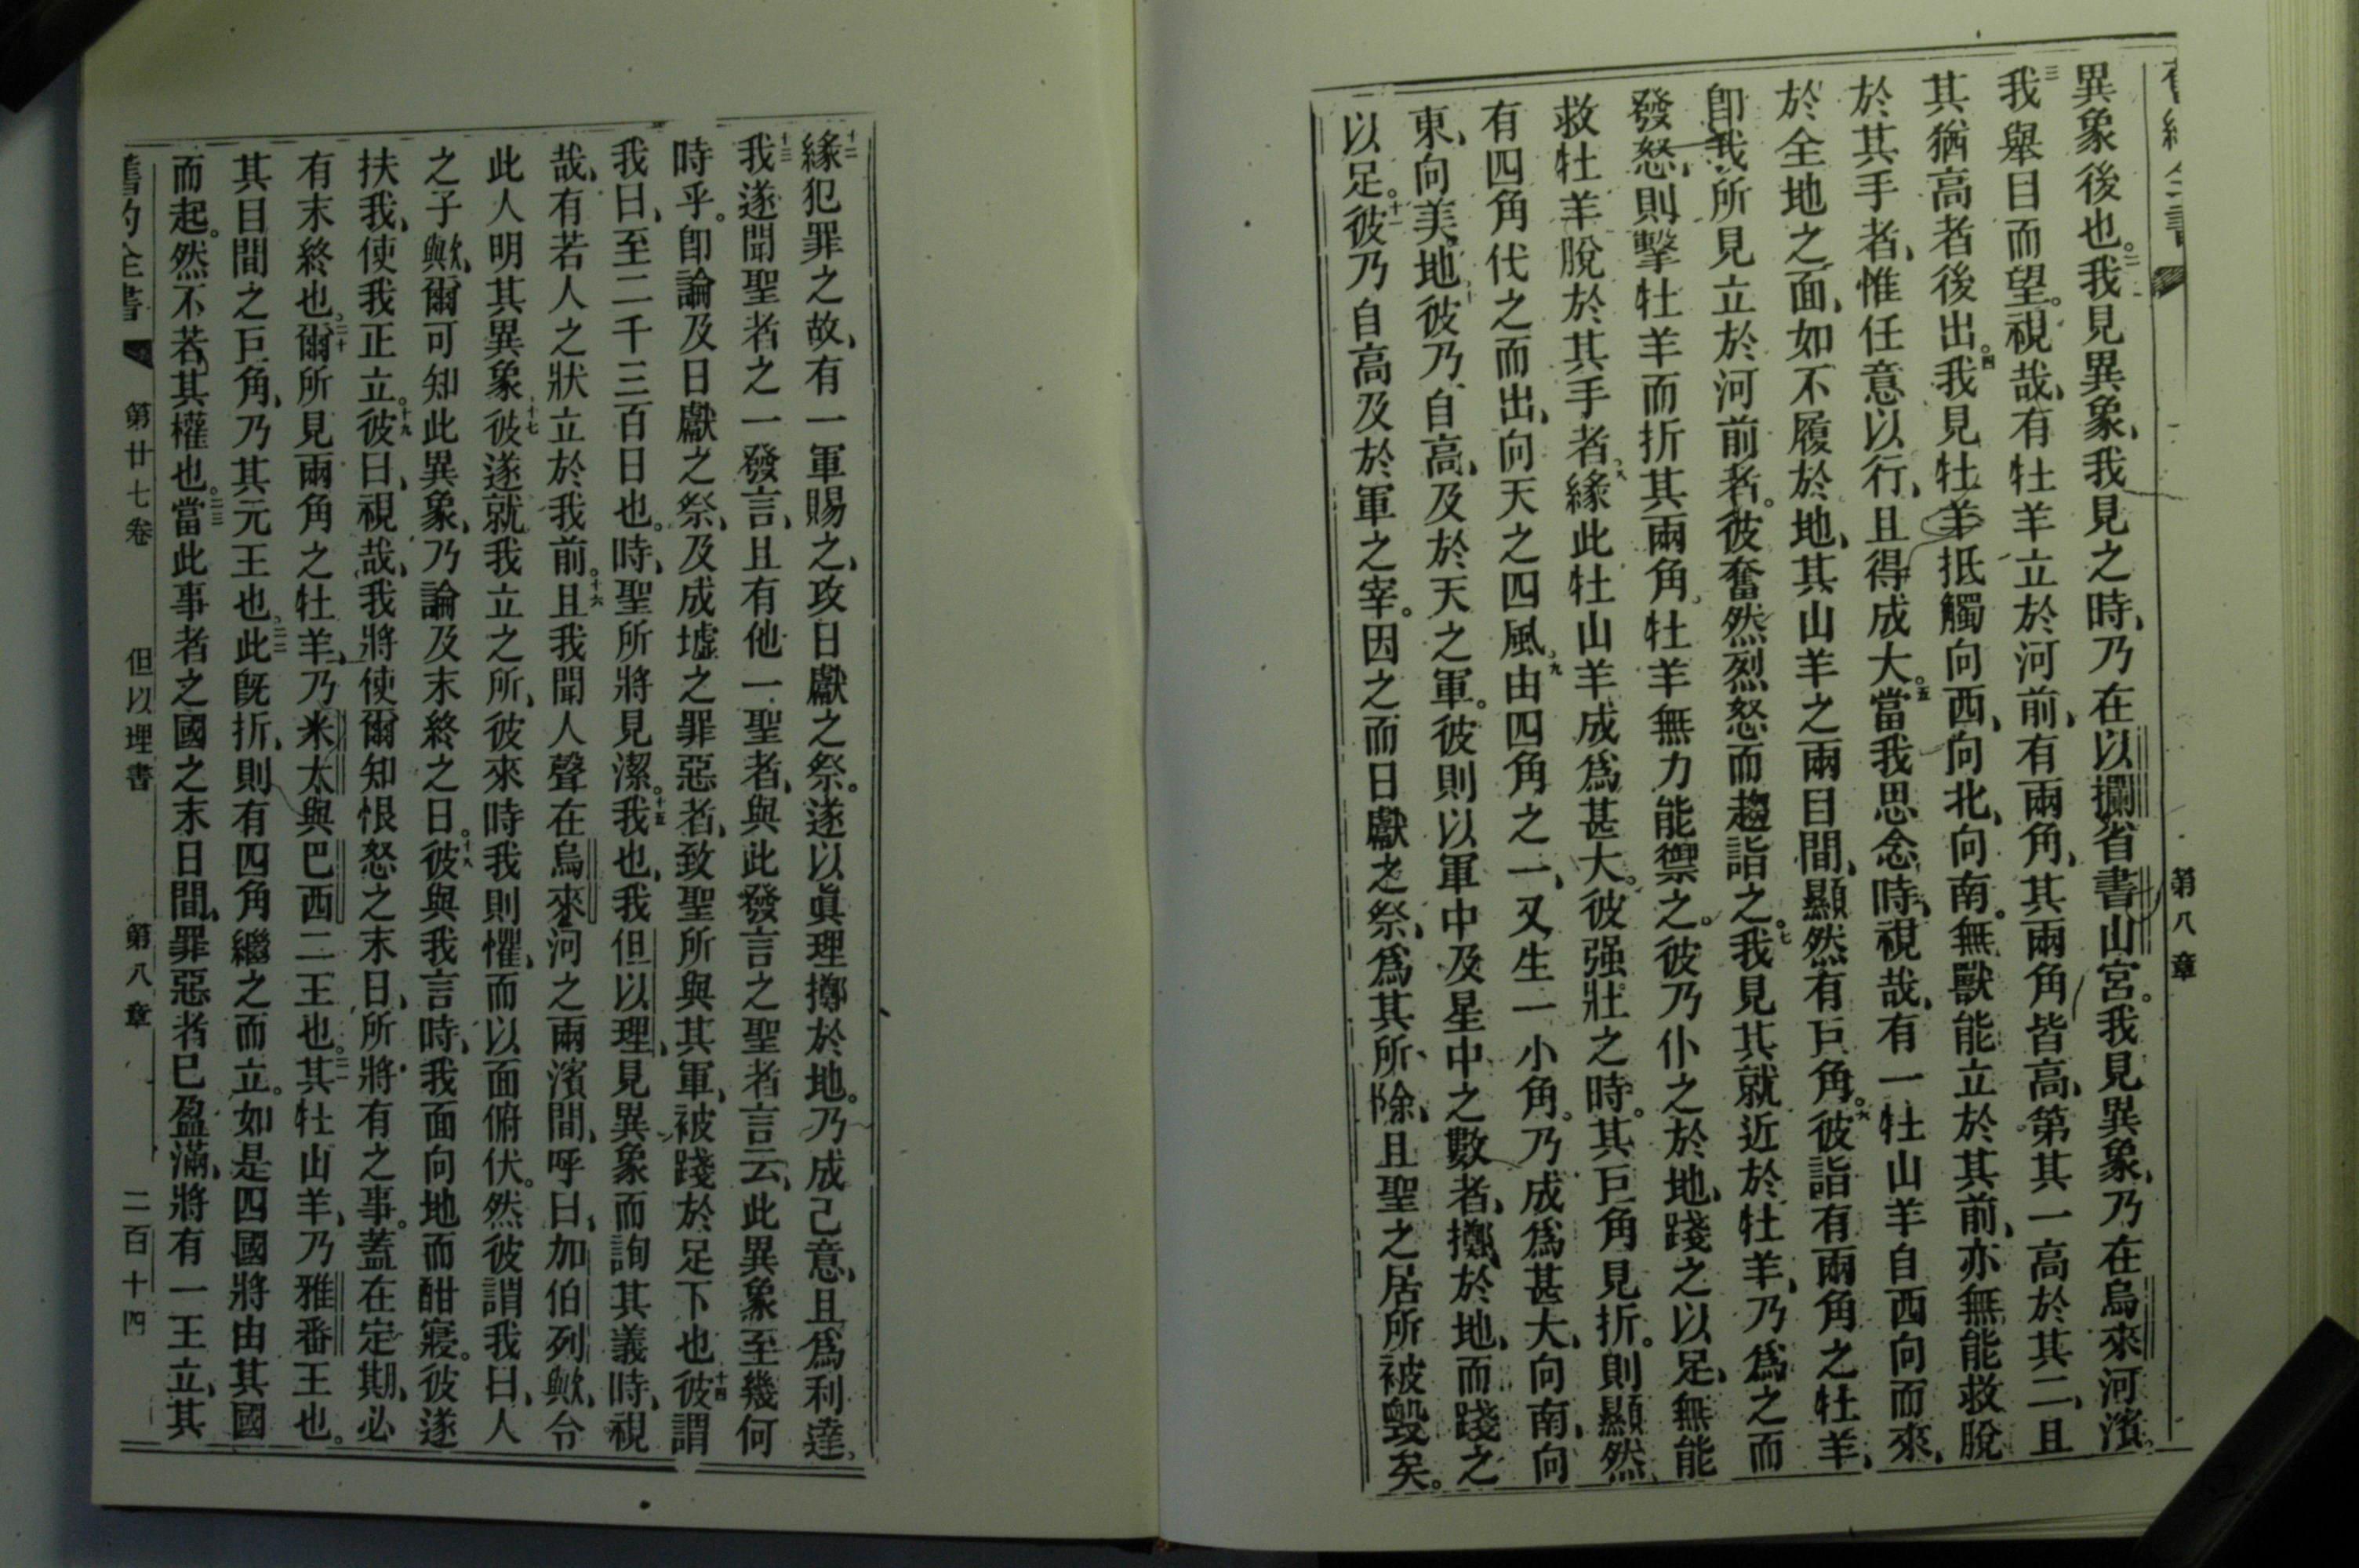 第八章
異象後也。二我見異象、我見之時、乃在以攔省書山宮。我見異象、乃在烏來河濱。
三我舉目而望。視哉、有牡羊立於河前、有兩角、其兩角皆高、第其一高於其二、且
其猶高者後出。四我見牡羊抵觸向西、向北、向南。無獸能立於其前、亦無能救脫
於其手者、惟任意以行、且得成大。五當我思念時、視哉、有一牡山羊自西向而來、
於全地之面、如不履於地、其山羊之兩目間、顯然有巨角。六彼詣有兩角之牡羊、
卽我所見立於河前者。彼奮然烈怒而趨詣之。七我見其就近於牡羊、乃爲之而
發怒、則擊牡羊而折其兩角、牡羊無力能禦之。彼乃仆之於地、踐之以足、無能
救牡羊脫於其手者、八緣此牡山羊成爲甚大。彼强壯之時。其巨角見折。則顯然
有四角代之而出、向天之四風、九由四角之一、又生一小角。乃成爲甚大、向南、向
東、向美地、十彼乃自高、及於天之軍。彼則以軍中及星中之數者、擲於地、而踐之
以足。十一彼乃自高及於軍之宰。因之而日獻之祭、爲其所除、且聖之居所被毀矣。
十二緣犯罪之故、有一軍賜之、攻日獻之祭。遂以眞理擲於地。乃成己意、且爲利達。
十三我遂聞聖者之一發言、且有他一聖者、與此發言之聖者言云、此異象至幾何
時乎。卽論及日獻之祭、及成墟之罪惡者、致聖所與其軍、被踐於足下也、十四彼謂
我曰、至二千三百日也。時、聖所將見潔。十五我也、我但以理、見異象而詢其義時、視
哉、有若人之狀立於我前。十六且我聞人聲在烏來河之兩濱間、呼曰、加伯列歟、令
此人明其異象、十七彼遂就我立之所、彼來時我則懼、而以面俯伏。然彼謂我曰、人
之子歟、爾可知此異象、乃論及末終之日。十八彼與我言時、我面向地而酣寢。彼遂
扶我、使我正立。十九彼曰、視哉、我將使爾知恨怒之末日、所將有之事。蓋在定期、必
有末終也。二十爾所見兩角之牡羊、乃米太與巴西二王也。二一其牡山羊、乃雅番王也。
其目間之巨角、乃其元王也。二二此旣折、則有四角繼之而立。如是四國將由其國
而起。然不若其權也。二三當此事者之國之末日間、罪惡者已盈滿、將有一王立、其
舊約全書 第廿七卷 但以理書 第八章 二百十四